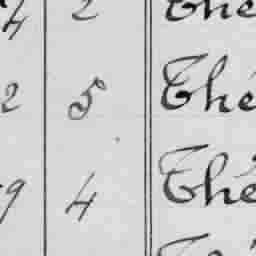 4 2 The
2 5 Thé
9 4 Thé